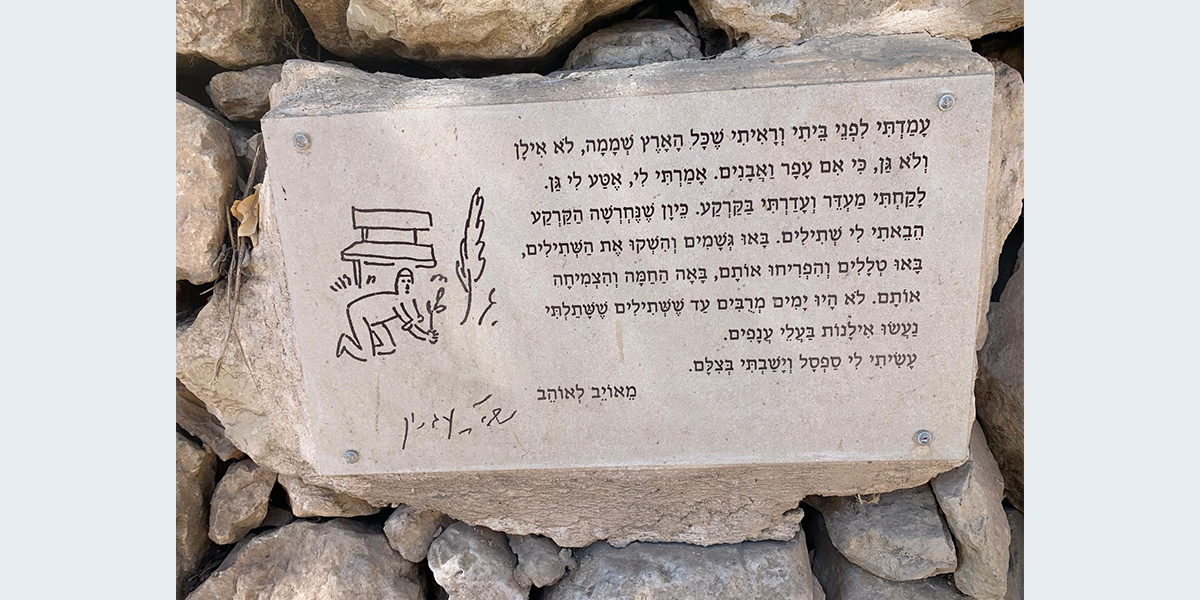 עָמַדְתִּי לִפְנֵי בֵּיתִי וְרָאִיתִי שֶׁכָּל הָאָרֶץ שְׁמָמָה, לֹא אִילָן
וְלֹא גַּן, כִּי אִם עָפָר וַאֲבָנִים. אָמַרְתִּי לִי, אֶטַּע לִי גַּן.
לָקַחְתִּי מַעְדֵּר וְעָדַרְתִּי בַּקַּרְקַע. כֵּיוָן שֶׁנֶּחְרְשָׁה הַקַּרְקַע
הֵבֵאתִי לִי שְׁתִילִים. בָּאוּ גְּשָׁמִים וְהִשְׁקוּ אֶת הַשְּׁתִילִים,
בָּאוּ טְלָלִים וְהִפְרִיחוּ אוֹתָם, בָּאָה הַחַמָּה וְהִצְמִיחָה
אוֹתָם. לֹא הָיוּ יָמִים מְרֻבִּים עַד שֶׁשְּׁתִילִים שֶׁשָּׁתַלְתִּי
נַעֲשׂוּ אִילָנוֹת בַּעֲלֵי עֲנָפִים.
עָשִׂיתִי לִי סַפְסָל וְיָשַׁבְתִּי בְּצִלָּם.
מֵאוֹיֵב לְאוֹהֵב
ש״י עגנון